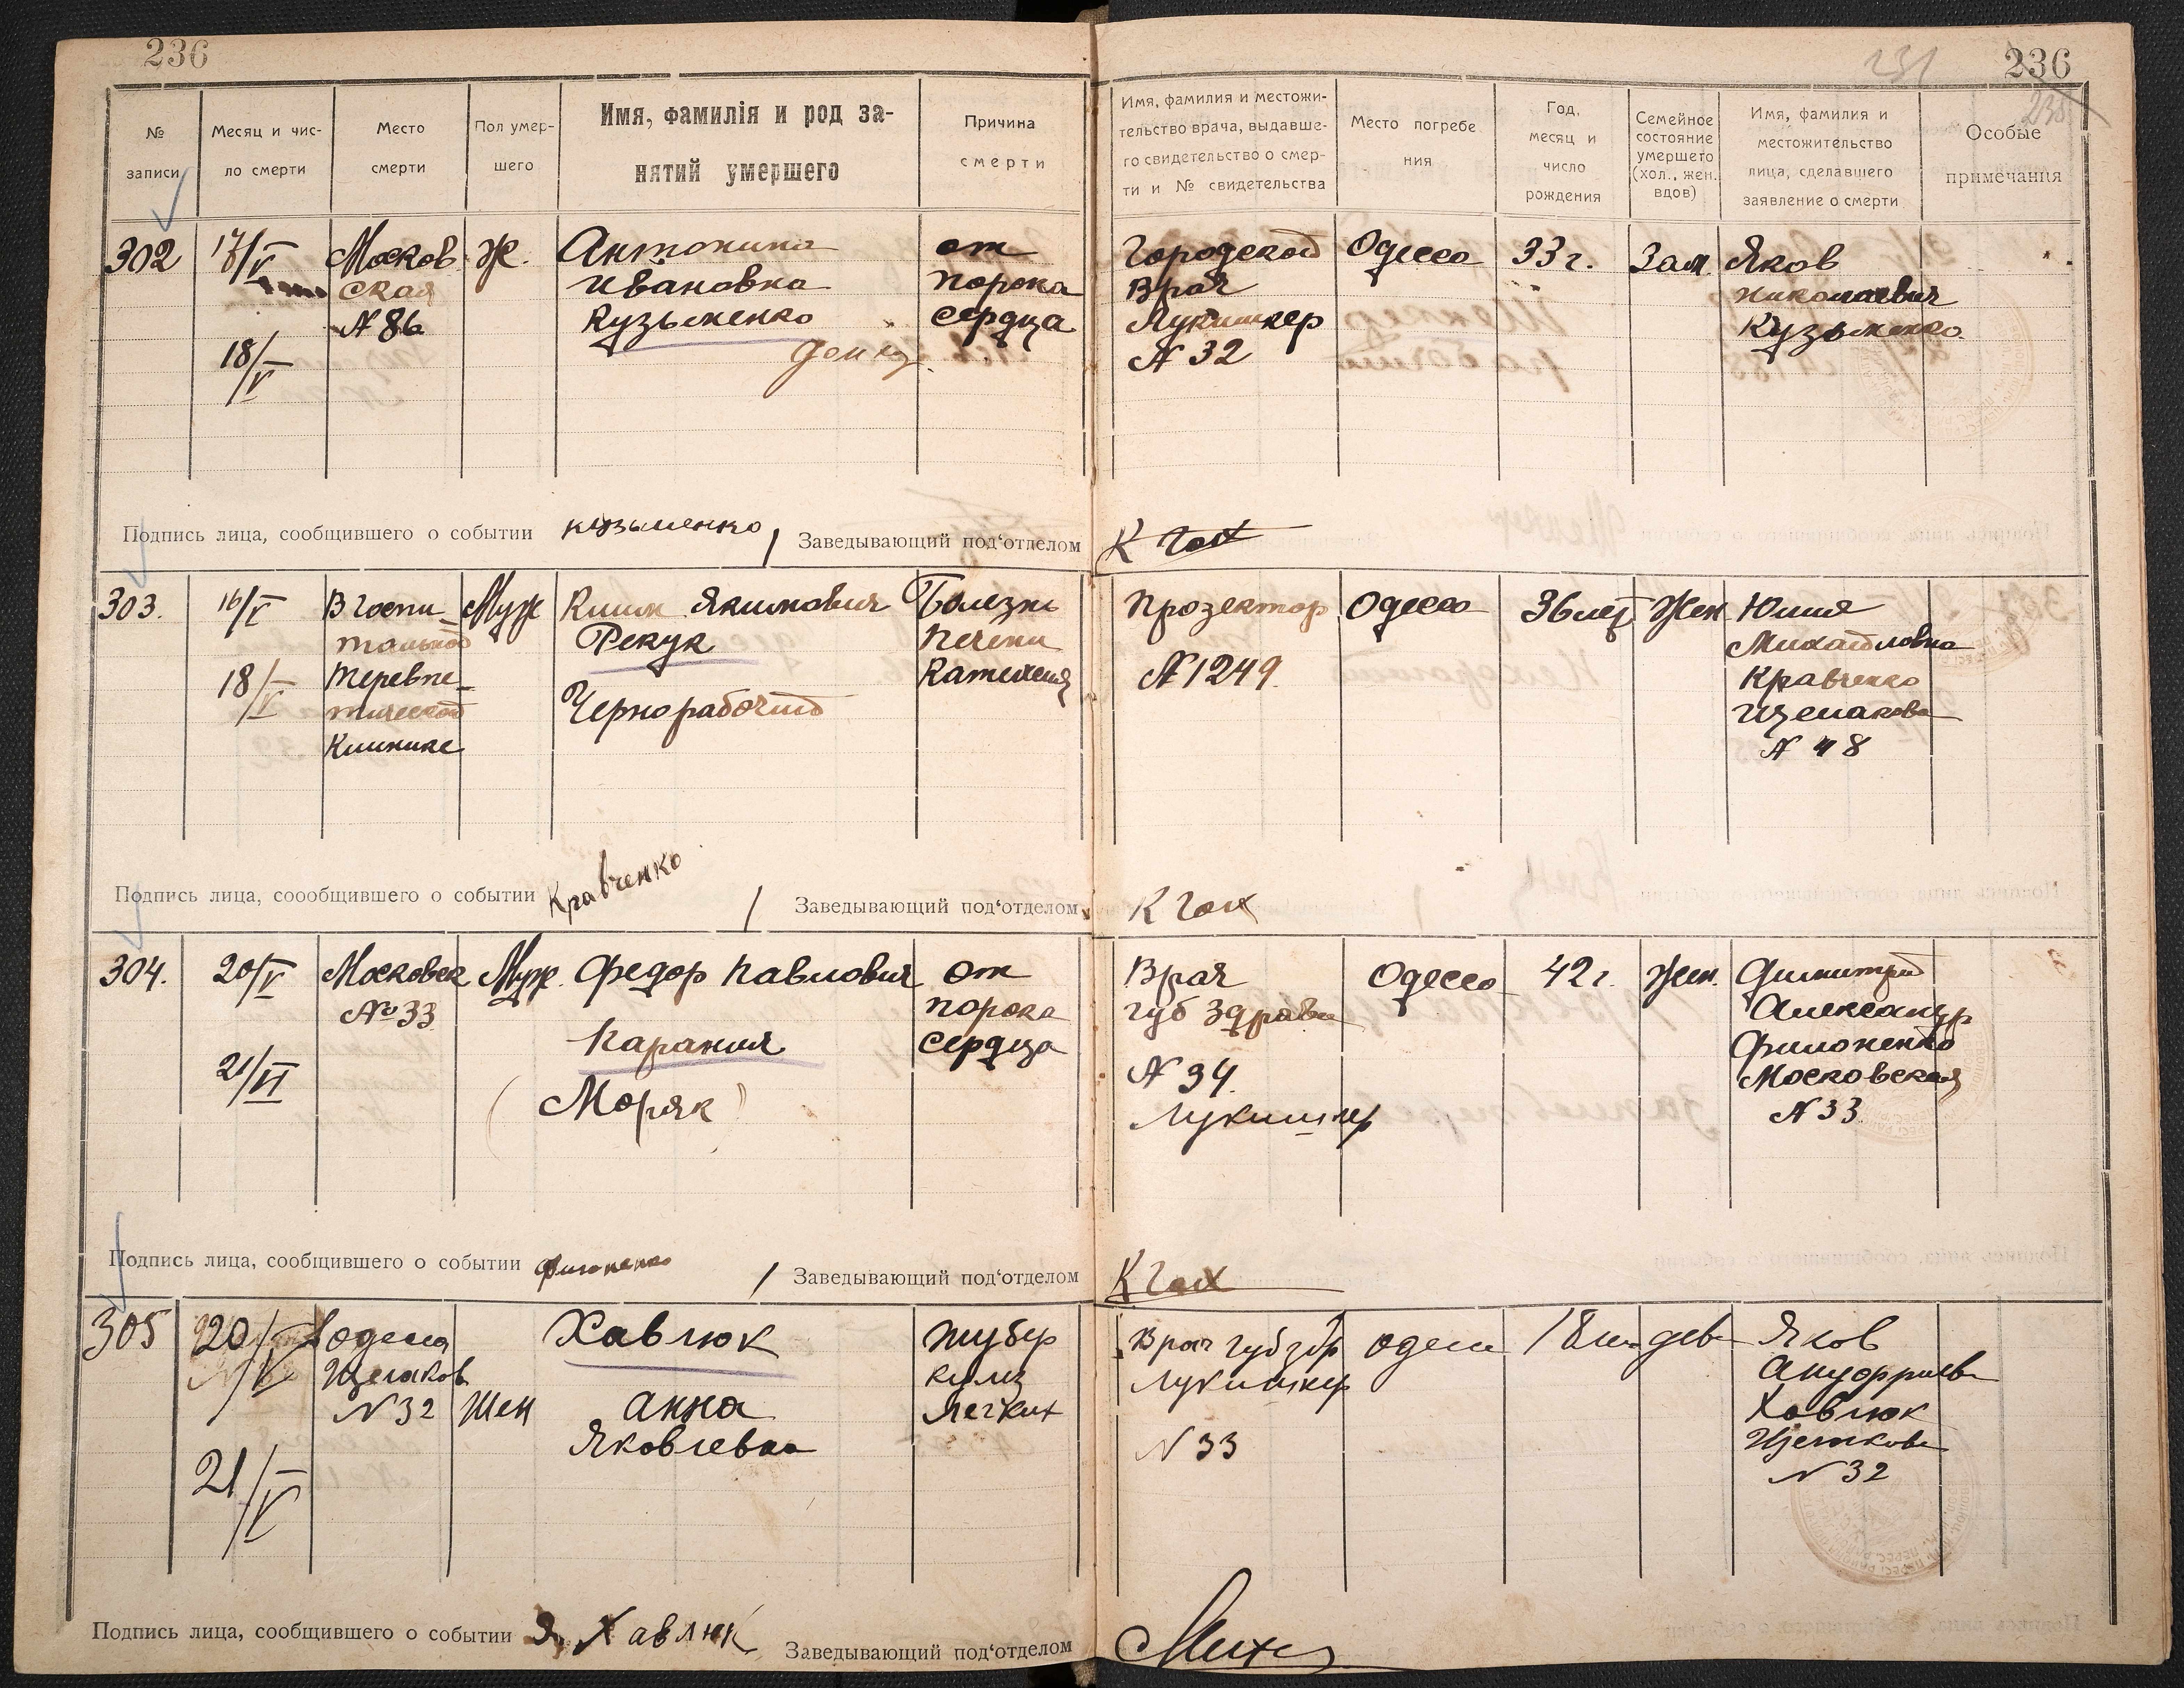 236
236
№
записи
Месяц и чис-
ло смерти
Место
смерти
Пол умер-
шего
Имя, фамилія и род за-
нятий умершего
Причина
смерти
Имя, фамилия и местожи-
тельство врача, выдавше-
го свидетельство о смер-
ти и № свидетельства
Место погребе
ния
Год,
месяц и
число
рождения
Семейное
состояние
умершего
(хол., жен.
вдов)
Имя, фамилия и
местожительство
лица, сделавшего
заявление о смерти
Особые
примечания
302
17/V
18/V
Москов
ская
N 86
Ж.
Антонина
Ивановна
Кузьменко
от
порока
сердца
Городской
Врач
Лукишкер
N 32
Одесса
33 г.
Зам.
Яков
Николаевич
Кузьменко
Подпись лица, сообщившего о событии Кузьменко
Заведывающий под‘отделом
303.
16/V
18/V
В госпи
тальной
Терепе-
тической
Клинике
Муж
Клим Якимович
Рекук
Чернорабочий
Болезнь
печени
Прозектор
N 1249.
Одесса
36 лет
Жен
Юлия
Михайловна
Кравченко
N 48
Подпись лица, соообщившего о событии Кравченко
Заведывающий под‘отделом
304.
20/V
21/VI
Московск
№ 33
Муж.
Федор Павлович
(Моряк)
От
порока
сердца
Врач
губ здрава
N 34.
Лукишкер
Одесса
42 г.
Жен.
Димитрий
Александр
Филоненко
Московская
N 33
Подпись лица, сообщившего о событии Филоненко
Заведывающий под‘отделом
305
20/V
21/V
Одесса
N 32
Жен
Хавлюк
Анна
Яковлевна
тубер
кулез
легких
Врач губздр
Лукишкер
N 33
Одесса
18 лет
дев
Яков
Хавлюк
N 32
Подпись лица, сообщившего о событии Я. Хавлюк
Заведывающий под‘отделом